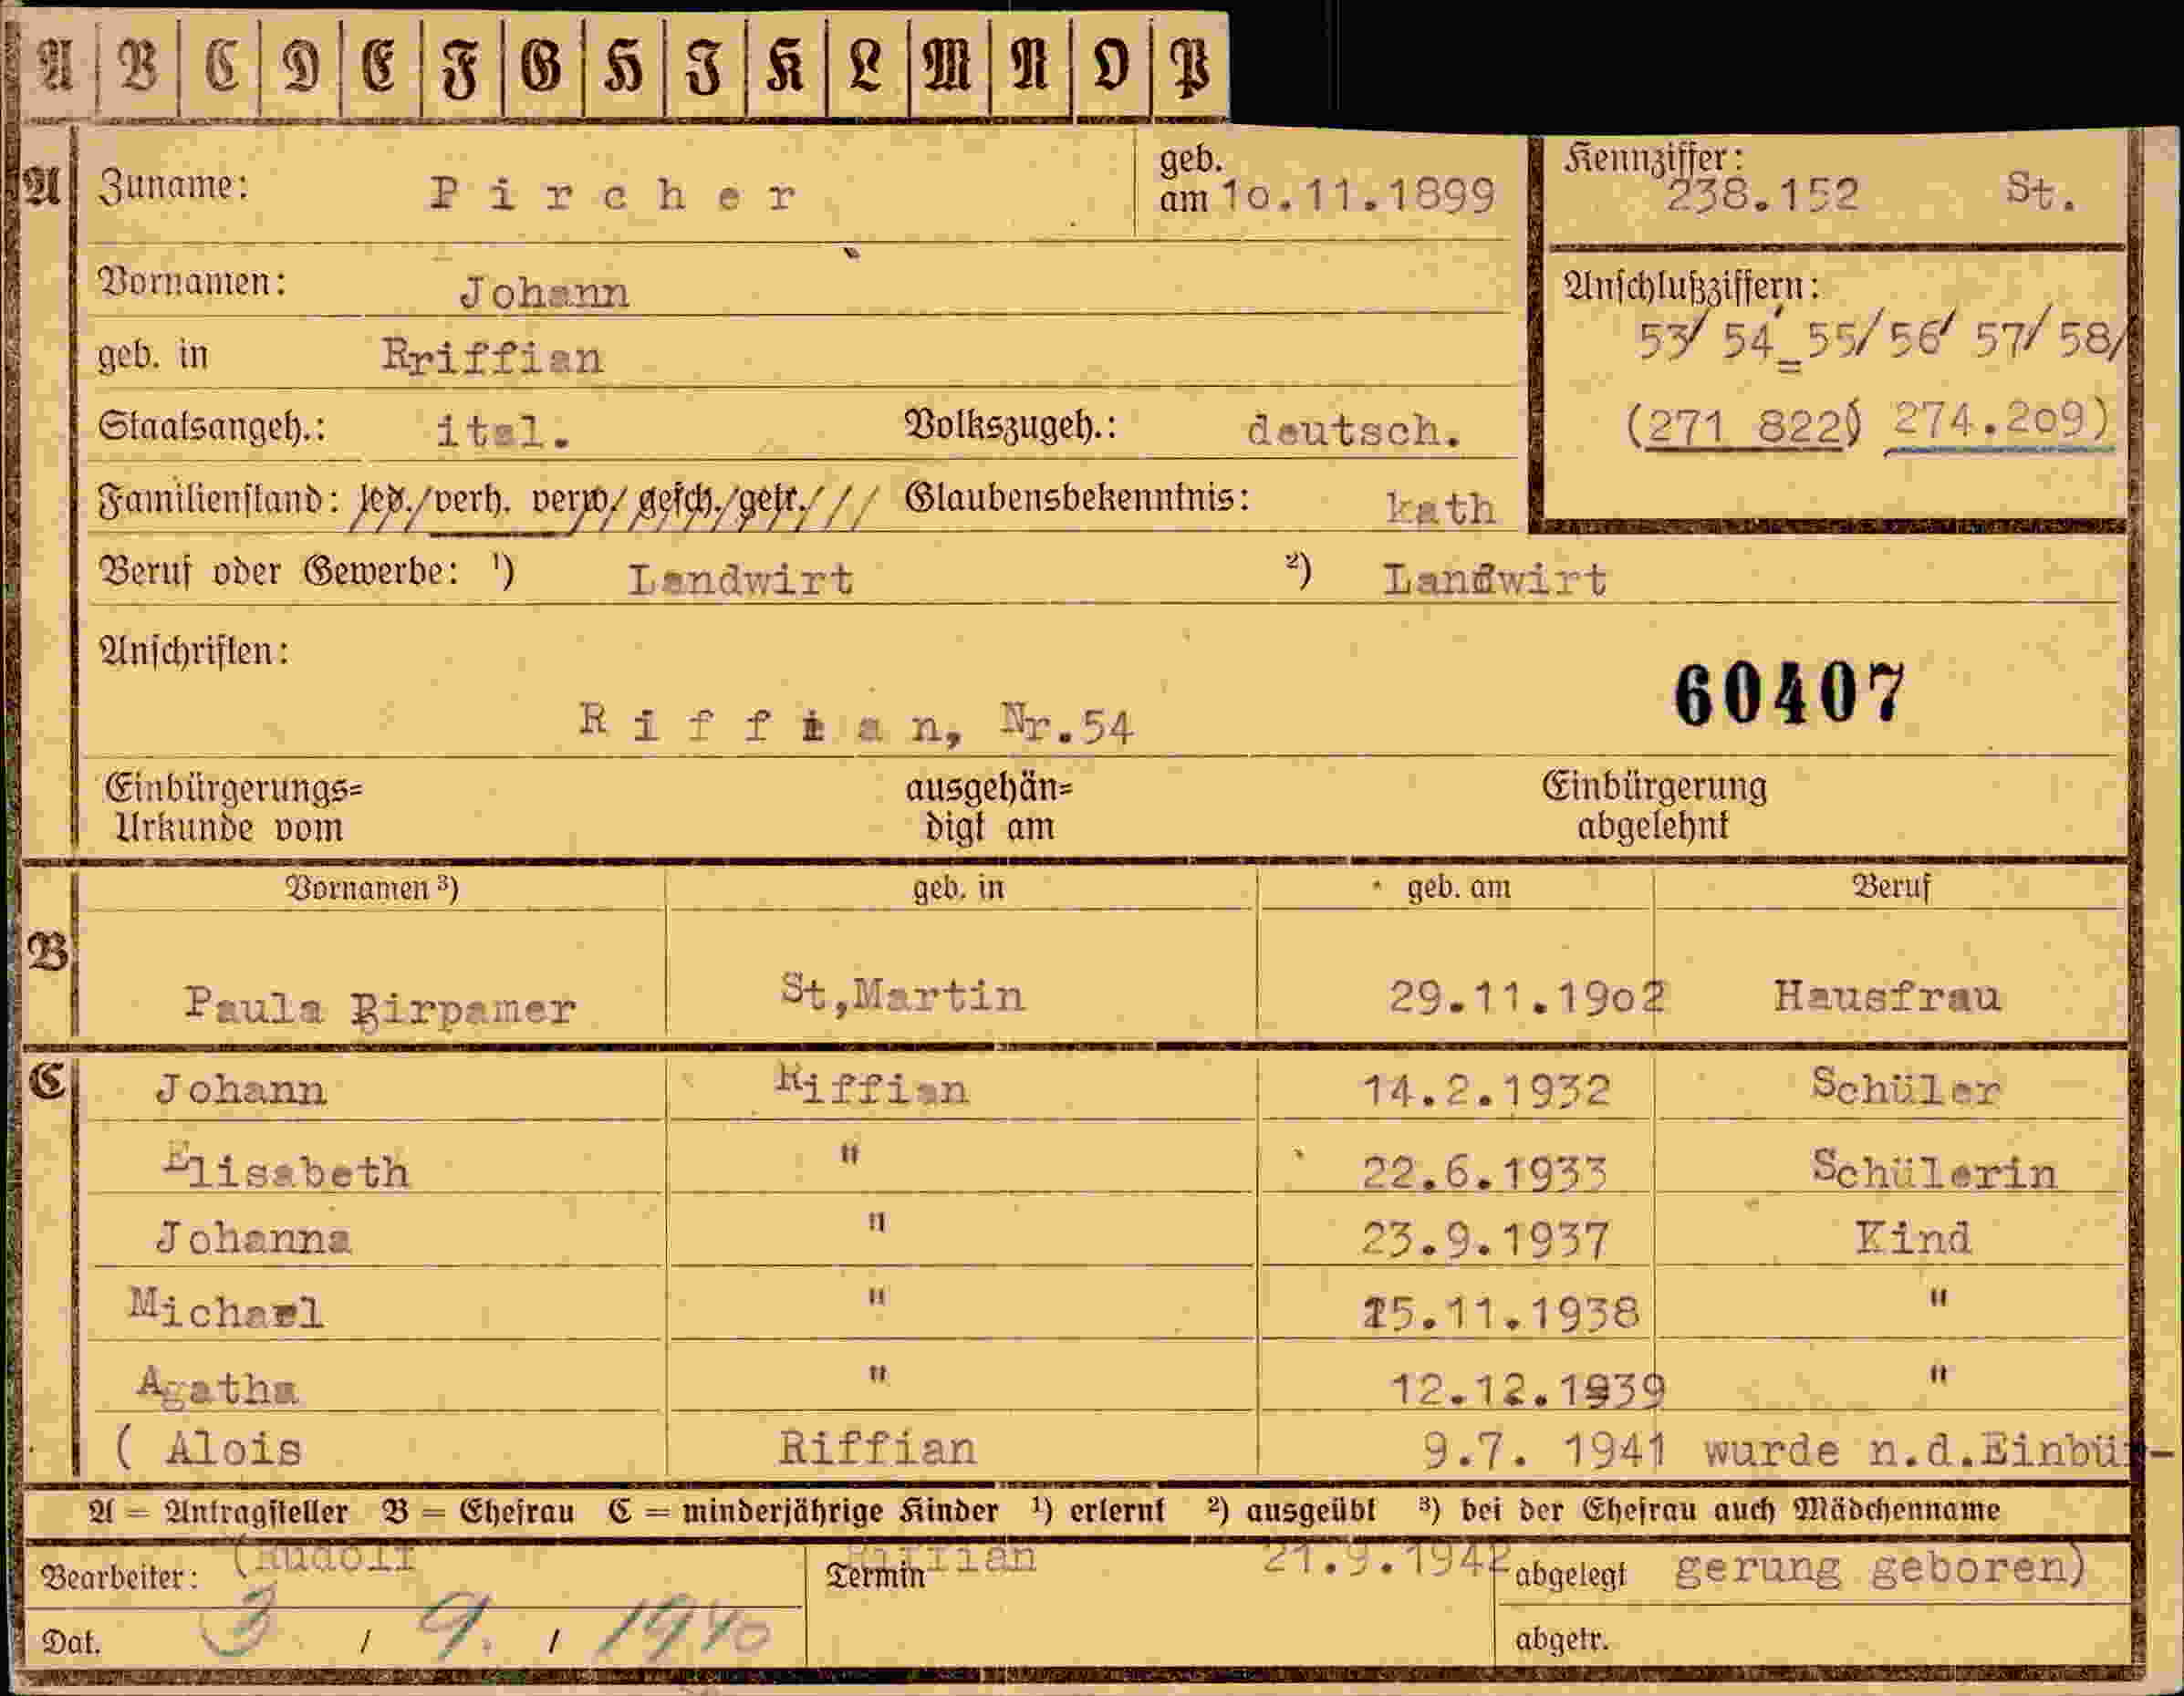 A B C D E F G H J K L M N O P
A Zuname: Pircher geb. am 10.11.1899 Kennziffer: 238.152 St.
Vornamen: Johann Anschlußziffern:
geb. in Rriffian 53/ 54 55/56/ 57/ 58/
Staatsangeh.: ital. Volkszugeh.: deutsch. (271 822) 274.209)
Familienstand: led./verh. verw/ gesch./getr./// Glaubensbekenntnis: kath
Beruf oder Gewerbe: ¹) Landwirt ²) Landwirt
Anschriften:
60407
Riffian, Nr.54
Einbürgerungs= ausgehän= Einbürgerung
Urkunde vom digt am abgelehnt
Vornamen ³) geb. in geb. am Beruf
B
Paula St,Martin 29.11.1902 Hausfrau
C Johann Riffian 14.2.1932 Schüler
Elisabeth " 22.6.1933 Schülerin
Johanna " 23.9.1937 Kind
Michael " 15.11.1938 "
Agatha " 12.12.1939 "
( Alois Riffian 9.7. 1941 wurde n.d.Einbür-
A = Antragsteller B = Ehefrau C = minderjährige Kinder ¹) erlernt ²) ausgeübt ³) bei der Ehefrau auch Mädchenname
Bearbeiter: (Rudolf Termin Riffian 21.9.1942 abgelegt gerung geboren)
Dat. 3 / 9. / 1940 abgetr.